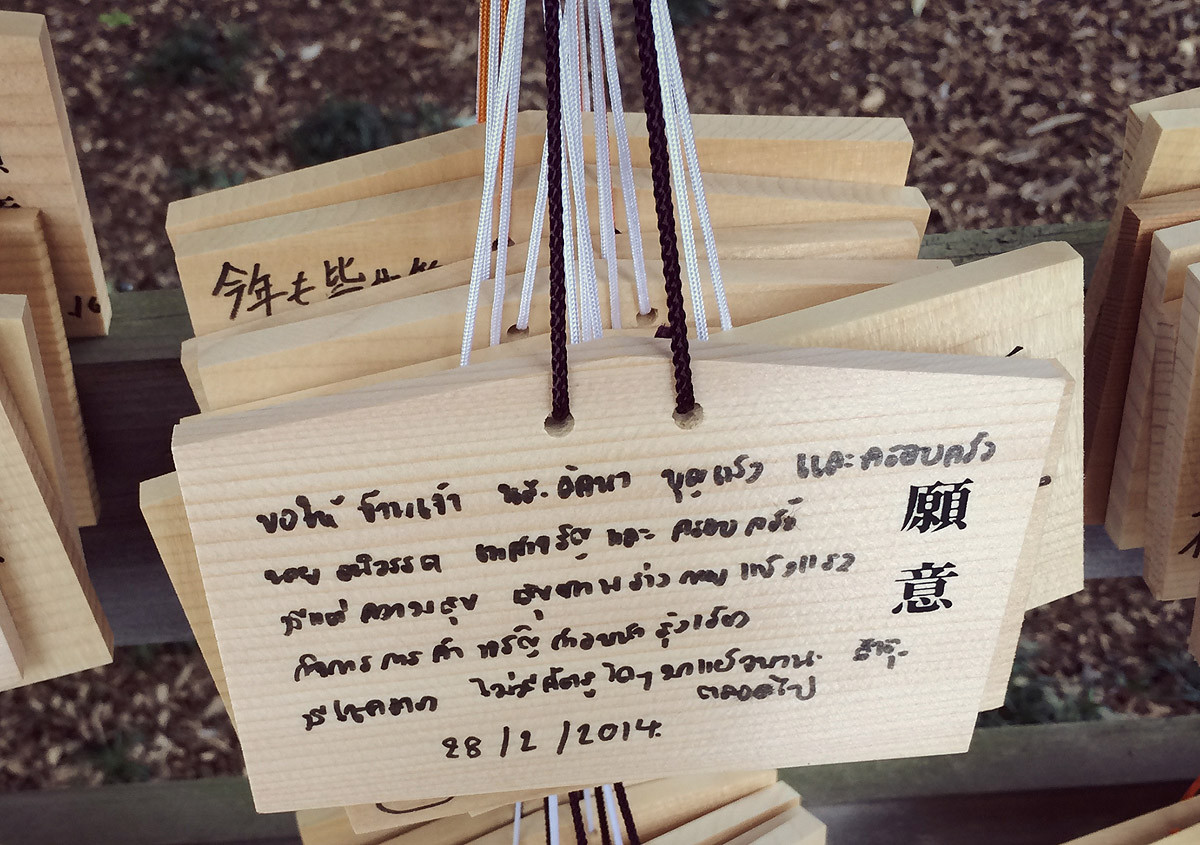 今年も皆
ขอให้ ข้าพเจ้า นส. บุญแก้ว และครอบครัว
นาย และ ครอบครัว
มีแต่ ความสุข สุขภาพร่างกาย แข็งแรง
กิจการ การค้า เจริญ ก้าวหน้า รุ่งเรือง
มีโชคลาภ ไม่มีศัตรูใดๆ มาแผ้วพาน. สาธุ.
ตลอดไป
28/2/2014.
願意